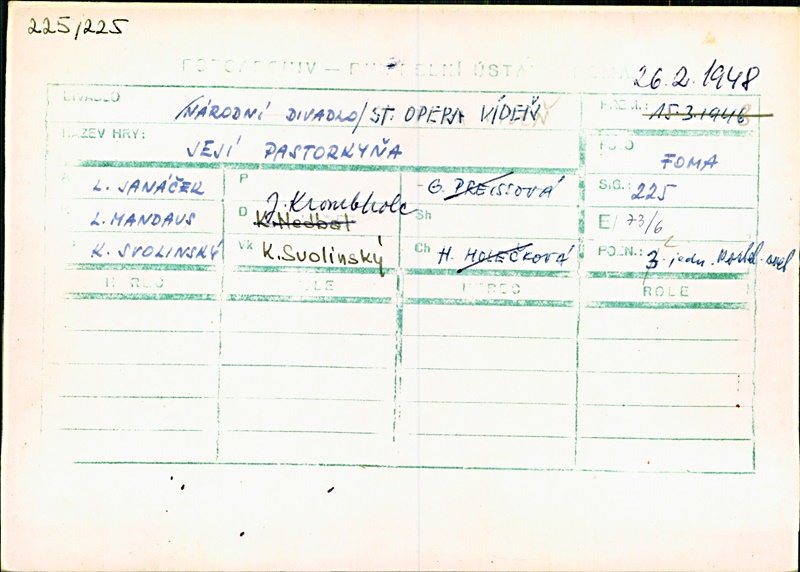 225/225
FOTOARCHIV – DIVADELNÍ ÚSTAV
26.2.1948
DIVADLO
NÁRODNÍ DIVADLO/ST. OPERA VÍDEŇ
PREM.: 15.3.1948
NÁZEV HRY:
JEJÍ PASTORKYŇA
FOTO
FOMA
L. JANÁČEK
P
G. PREISSOVÁ
SIG.: 225
L. MANDAUS
D
J. Krombholc
K. Nedbal
Sh
E/73/6
K. SVOLINSKÝ
Vk
K. Svolinský
Ch
H. HOLEČKOVÁ
POZN.: 3. jedn.
HEREC
ROLE
HEREC
ROLE